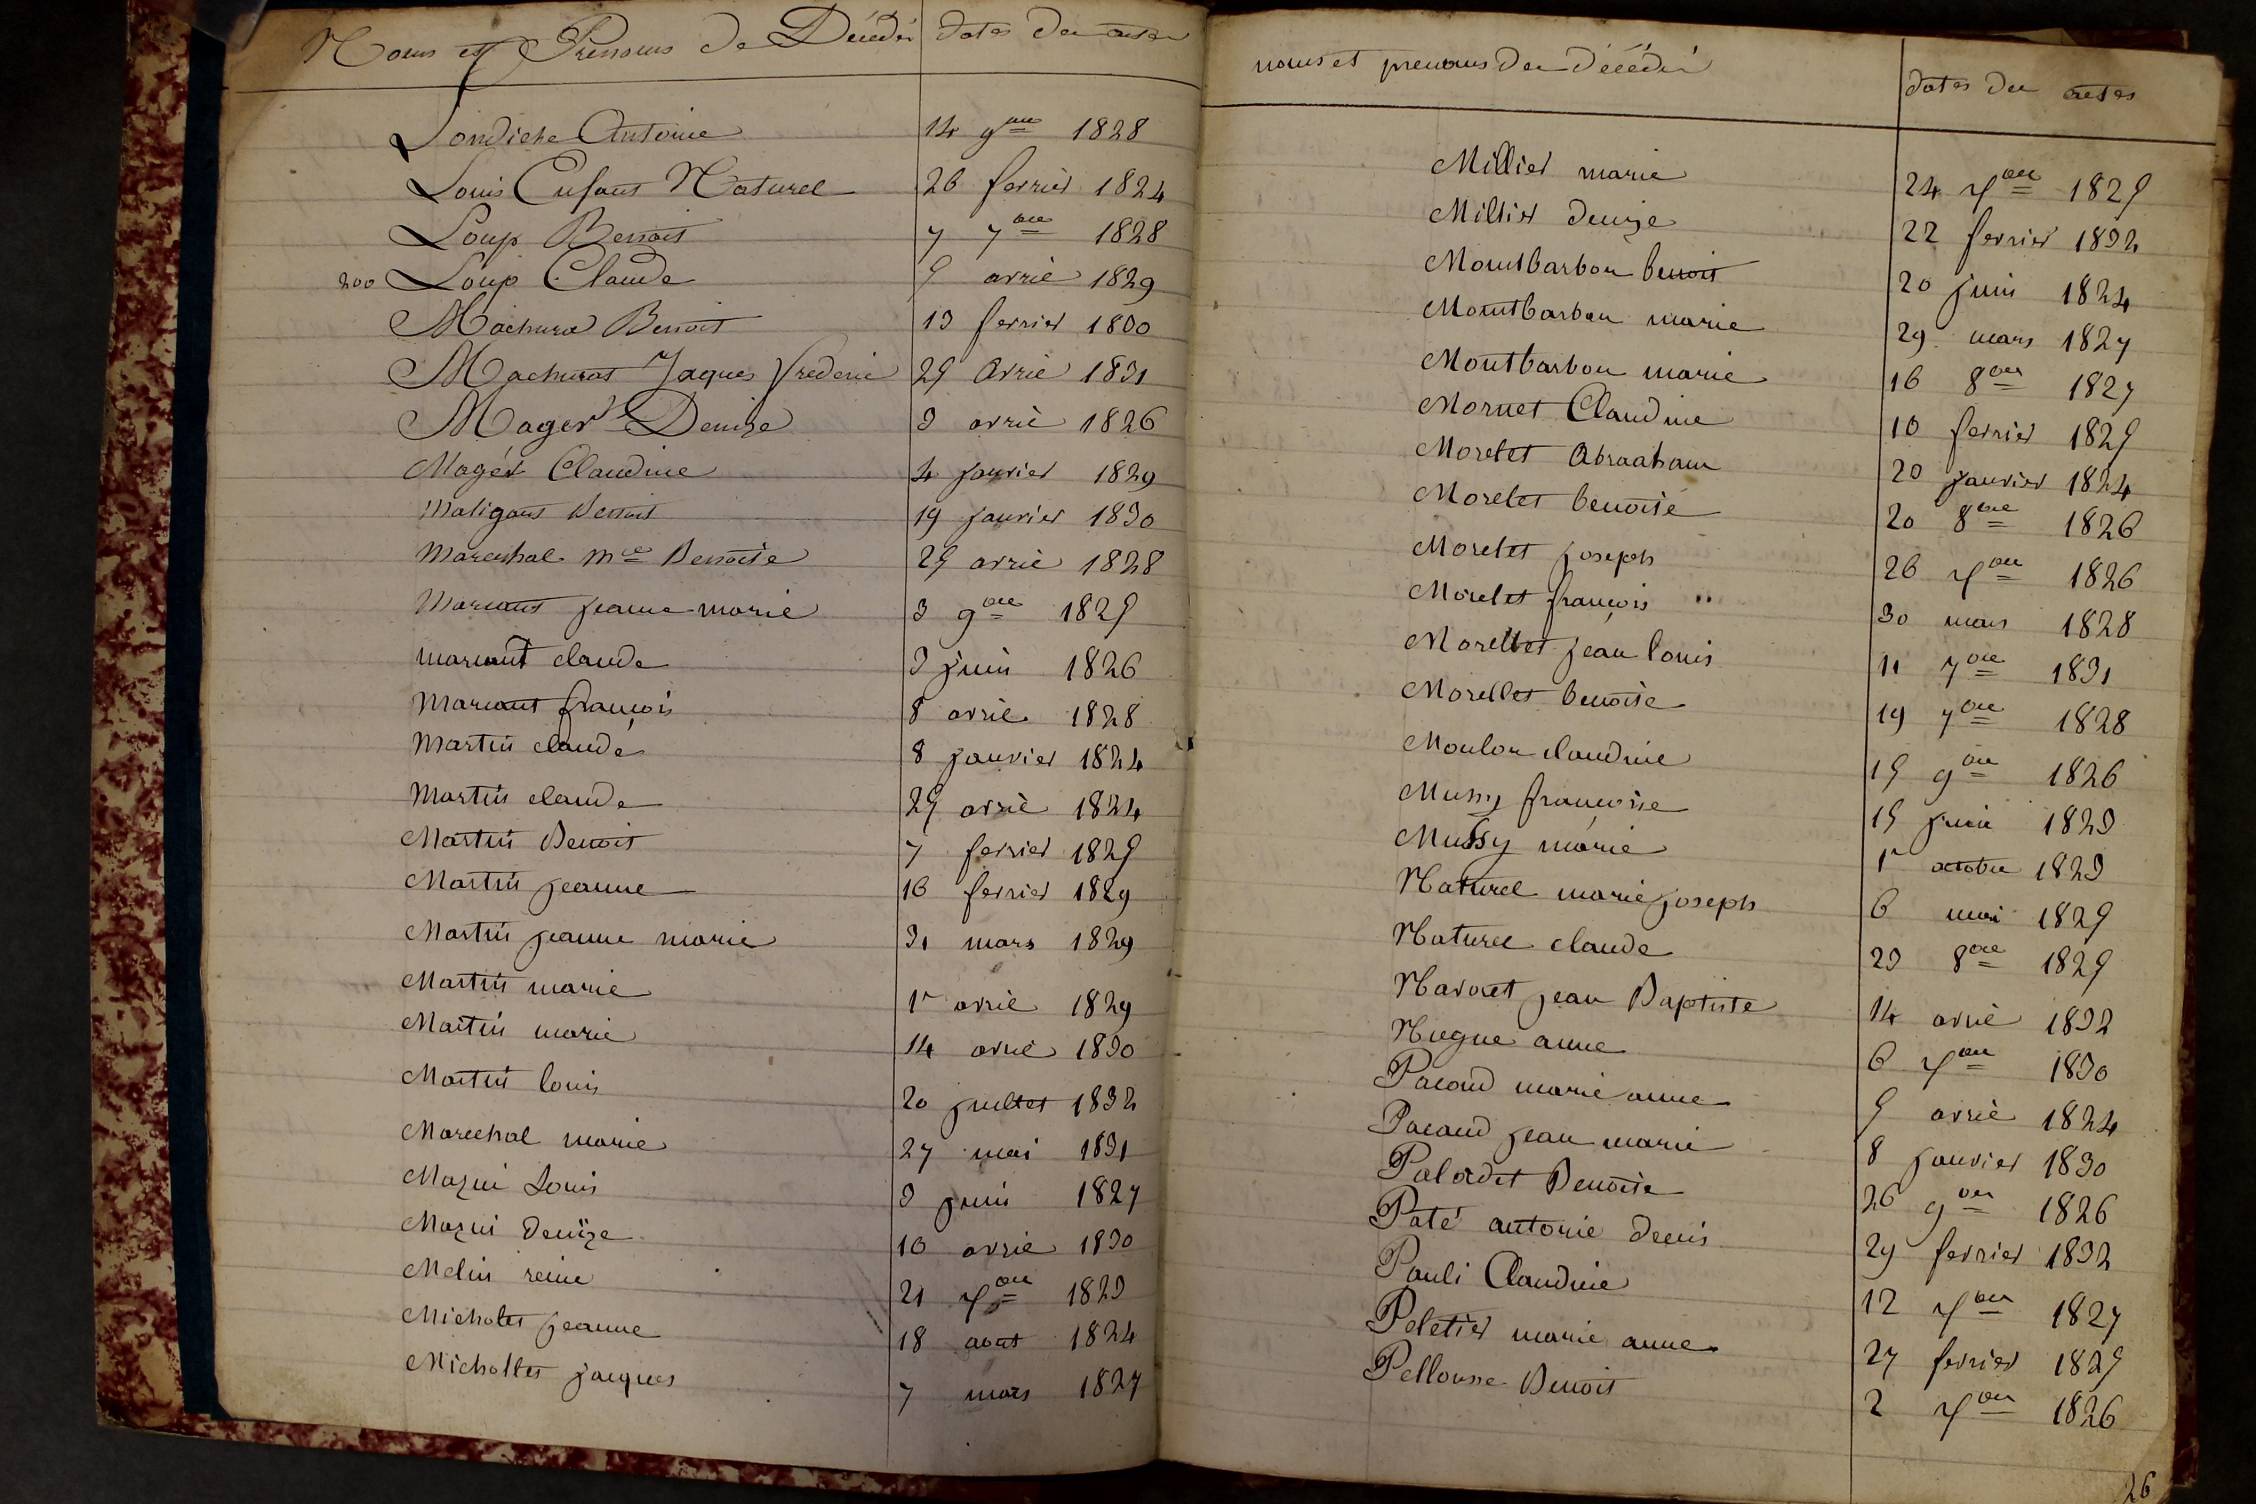 Noms et Prenoms de Décédés dates des actes
Londiche Antoine 14 9bre 1828
Louis Enfant Naturel 26 fevrier 1824
Loup Benoit 7 7bre 1828
200 Loup Claude 5 avril 1829
Machurat Benoit 13 fevrier 1830
Machurat Jaques frederic 25 Avril 1831
Mager Denize 3 avril 1826
Magér Claudine 4 janvier 1829
Maligant Benoit 19 janvier 1830
Marechal mie Benoite 25 avril 1828
Mariant jeanne marie 3 9bre 1825
mariant claude 3 juin 1826
Mariant françois 8 avril 1828
Martin claude 8 janvier 1824
Martin claude 25 avril 1824
Martin Benoit 7 fevrier 1825
Martin jeanne 16 fevrier 1829
Martin jeanne marie 31 mars 1829
Martin marie 1r avril 1829
Martin marie 14 avril 1830
Martin louis 20 juillet 1832
Marechal marie 27 mai 1831
Mazui Louis 3 juin 1827
Mazui Denize 10 avril 1830
Melin reine 21 Xbre 1823
Micholet jeanne 18 aout 1824
Michollet jacques 7 mars 1827
noms et prenoms des Décédés dates des actes
Millier marie 24 Xbre 1825
Millier denize 22 fevrier 1832
Montbarbon benoit 20 juin 1824
Montbarbon marie 29 mars 1827
Montbarbon marie 16 8bre 1827
Mornet Claudine 10 fevrier 1825
Morelet Abraaham 20 janvier 1824
Morelet benoite 20 8bre 1826
Morelet joseph 26 Xbre 1826
Morelet françois 30 mars 1828
Morellet jean louis 11 7bre 1831
Morellet benoite 19 7bre 1828
Moulon claudine 15 9bre 1826
Mussy françoise 15 juin 1823
Mussy marie 1r octobre 1823
Naturel marie joseph 6 mai 1825
Naturel claude 23 8bre 1825
Navoret jean Baptiste 14 avril 1832
Nugue anne 6 Xbre 1830
Pacoud marie anne 5 avril 1824
Pacaud jean marie 8 janvier 1830
Palordet Benoite 26 9bre 1826
Paté antoine denis 29 fevrier 1832
Pauli Claudine 12 Xbre 1827
Peletier marie anne 27 fevrier 1825
Pellousse Benoit 2 Xbre 1826
26